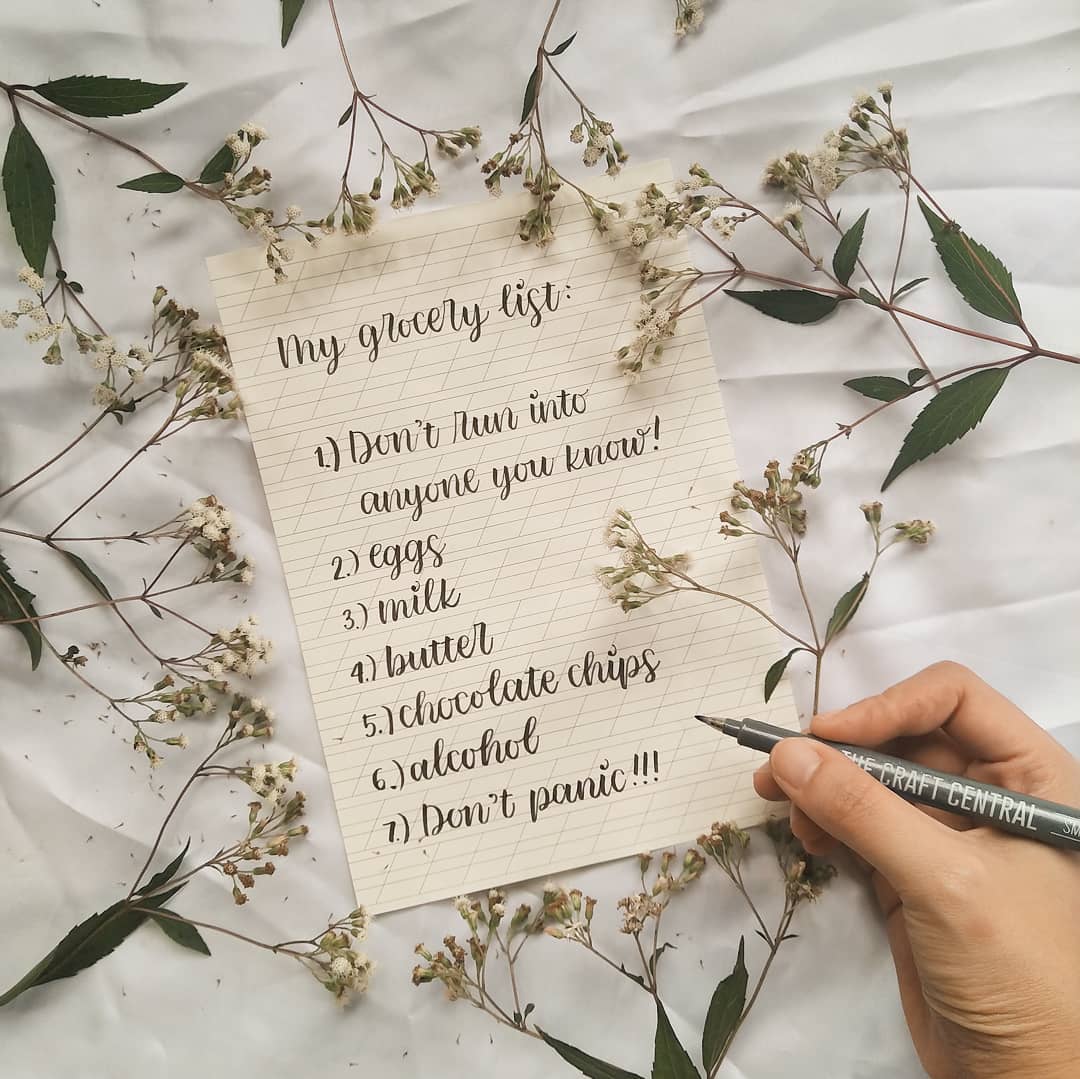 My grocery list:
1.) Don't run into
anyone you know!
2.) eggs
3.) milk
4.) butter
5.) chocolate chips
6.) alcohol
7.) Don't panic!!!
THE CRAFT CENTRAL